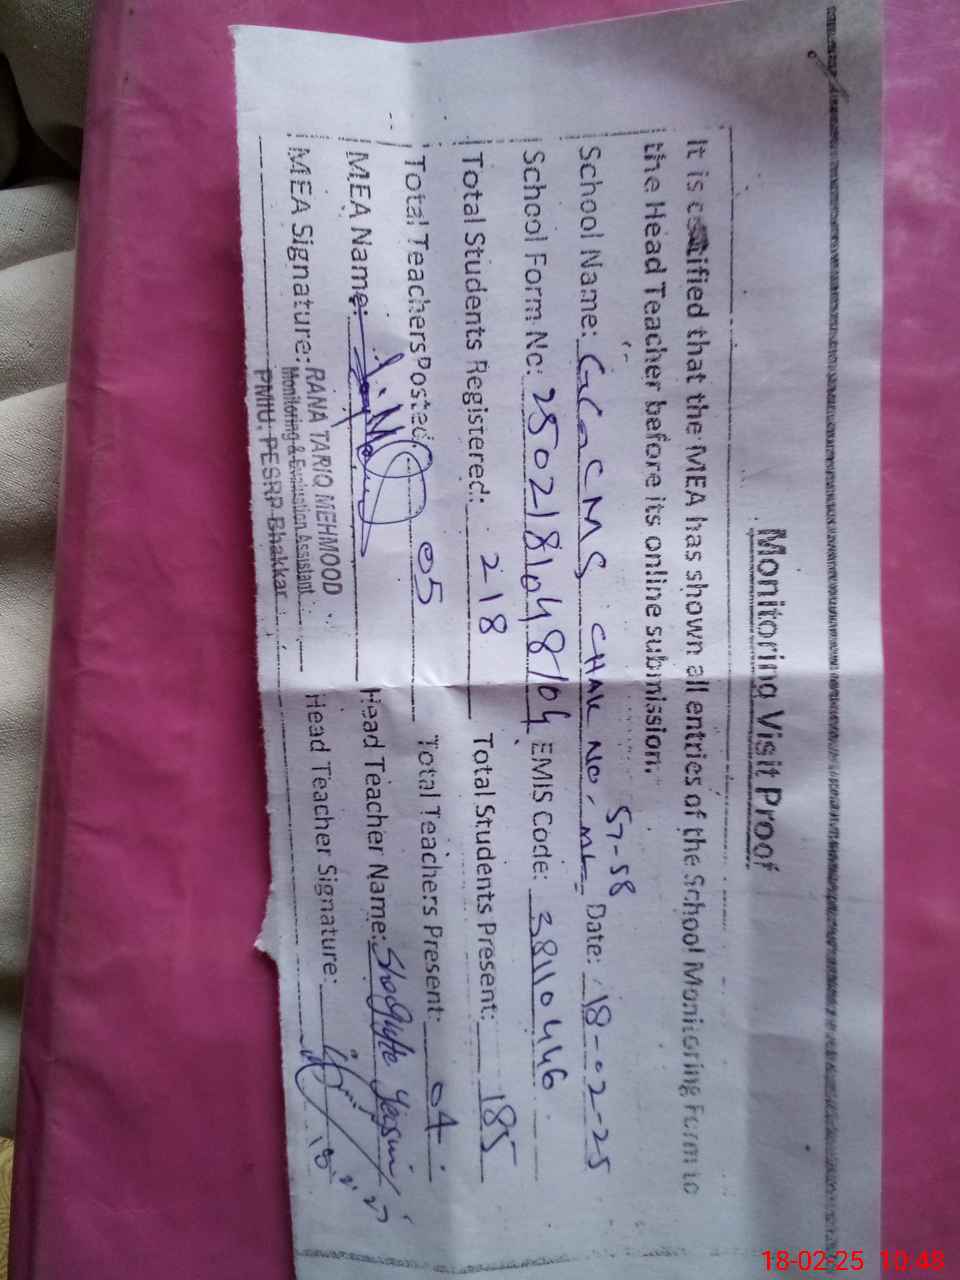 Monitoring Visit Proof
It is certified that the MEA has shown all entries of the School Monitoring Form to
the Head Teacher before its online submission.
57-58
School Name: GGCMS CHAK NO. ML Date: 18-02-25
School Form No: EMIS Code: 38110446
Total Students Registered: 218 Total Students Present: 185
Total Teachers Posted: 05 Total Teachers Present: 04
MEA Name: Head Teacher Name: Shagufta Yasmin
MEA Signature: Head Teacher Signature:
RANA TARIQ MEHMOOD
Monitoring & Evaluation Assistant
PMIU, PESRP Bhakkar
18-02-25 10:48